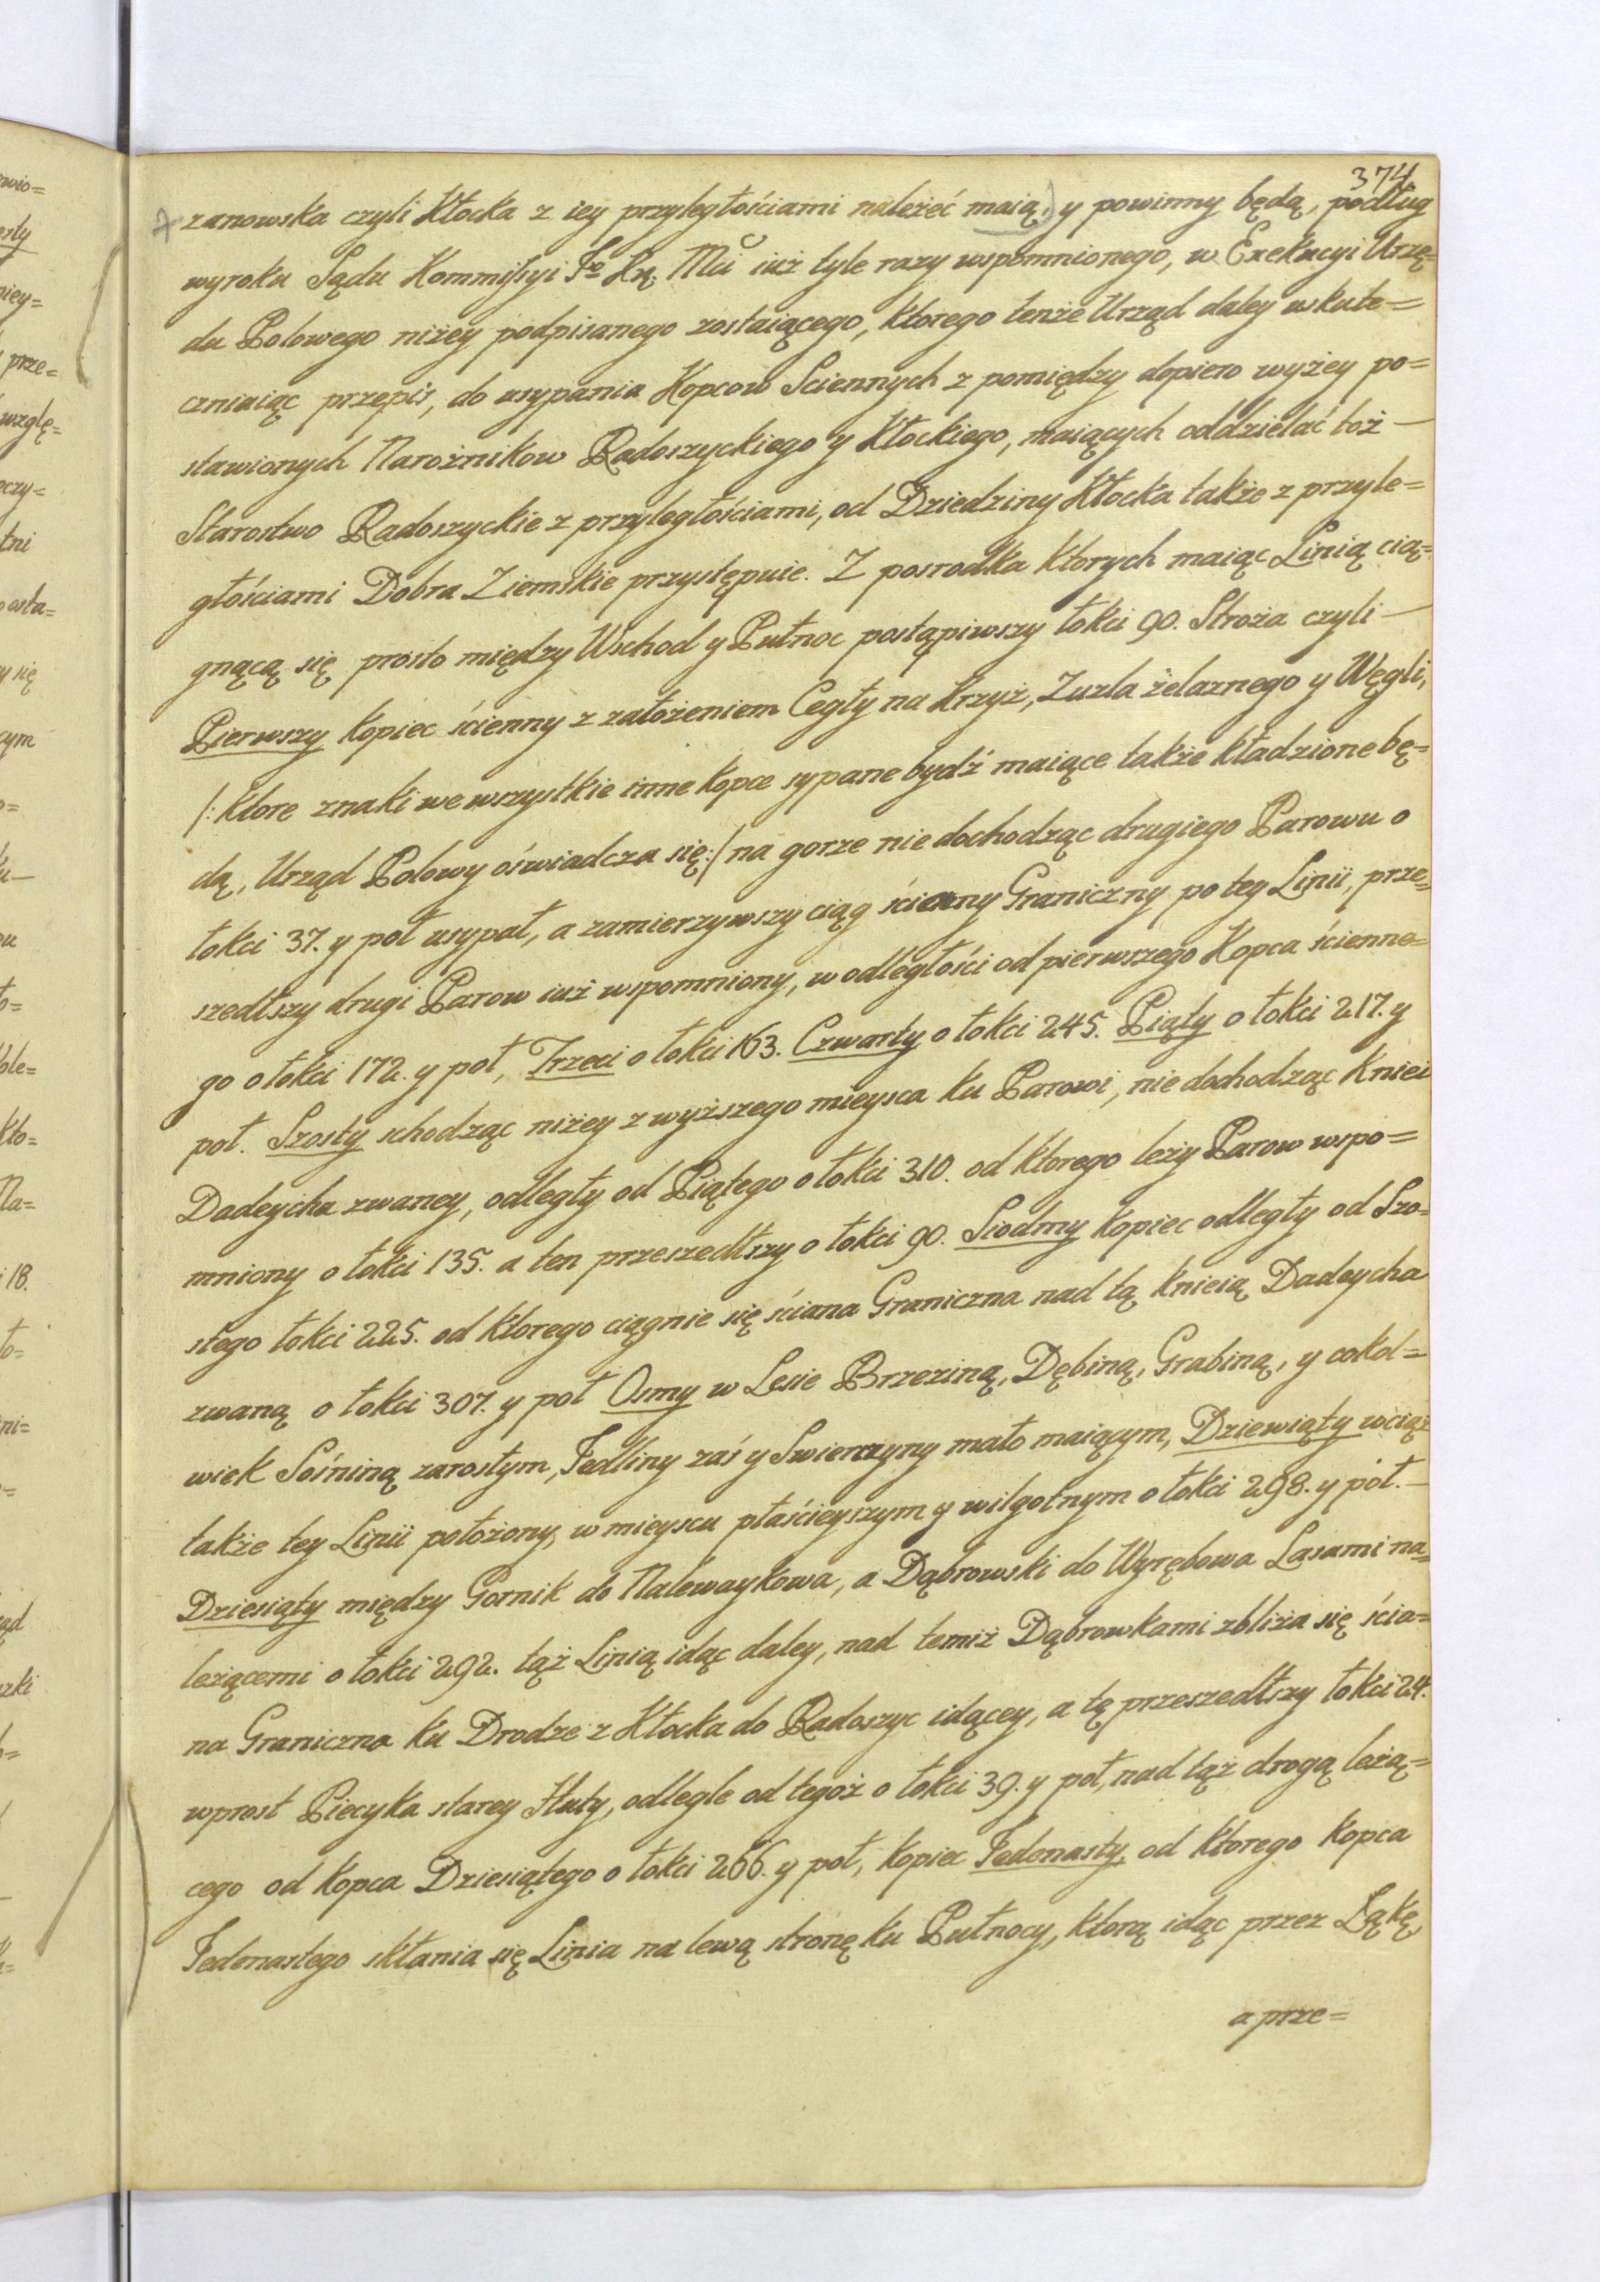 374
zanowska czyli Kłocka z iey przyległościami należeć maią, y powinny będą, podług
wyroku Sądu Kommissyi już tyle razy wspomnionego, w Exekucyi Urzę=
du Polowego niżey podpisanego zostaiącego, ktorego tenże Urząd daley uskute=
czniaiąc przepis, do usypania Kopcow Sciennych z pomiędzy dopiero wyżey po=
stawionych Narożnikow Radoszyckiego y Kłockiego, maiących oddzielać toż —
Starostwo Radoszyckie z przyległościami, od Dziedziny Kłocka także z przyle=
głościami Dobra Ziemskie przystępuie. Z posrodka ktorych maiąc Linią cią=
gnącą się prosto między Wschod y Pułnoc postąpiwszy łokci 90. Stroża czyli —
Pierwszy kopiec ścienny z założeniem Cegły na Krzyż, Zuzla żelaznego y Węgli,
/: ktore znaki we wszystkie inne kopce sypane bydź maiące także kładzione bę=
dą, Urząd Polowy oświadcza się:/ na gorze nie dochodząc drugiego Parowu o
łokci 37. y poł usypał, a zamierzywszy ciąg ścienny Graniczny po tey Linii, prze=
szedłszy drugi Parow iuż wspomniony, w odległości od pierwszego Kopca ścienne=
go o łokci 172. y poł, Trzeci o łokci 163. Czwarty o łokci 245. Piąty o łokci 217. y
poł. Szosty schodząc niżey z wyższego mieysca ku Parowi, nie dochodząc Kniei
Dadeycha zwaney, odległy od Piątego o łokci 310. od ktorego leży Parow wspo=
mniony o łokci 135. a ten przeszedłszy o łokci 90. Siodmy kopiec odległy od Szo=
stego łokci 225. od ktorego ciągnie się ściana Graniczna nad tą knieią Dadeycha
zwaną o łokci 307. y poł Osmy w Lesie Brzeziną, Dębiną, Grabiną, y cokol=
wiek Sośniną zarosłym, Jedliny zaś y Swierczyny mało maiącym, Dziewiąty wciąż
także tey Linii położony, w mieyscu płaścieyszym y wilgotnym o łokci 298. y poł. —
Dziesiąty między Gornik do Nalewaykowa, a Dąbrowski do Wyrębowa Lasami na=
leżącemi o łokci 292. tąż Linią idąc daley, nad temiż Dąbrowkami zbliża się ścia=
na Graniczna ku Drodze z Kłocka do Radoszyc idącey, a tę przeszedłszy łokci 24.
wprost Piecyka starey Huty, odległe od tegoż o łokci 39. y poł, nad tąż drogą leżą=
cego od kopca Dziesiątego o łokci 266. y poł, kopiec Jedenasty, od ktorego kopca
Jedenastego skłania się Linia na lewą stronę ku Pułnocy, ktorą idąc przez Łąkę,
a prze=